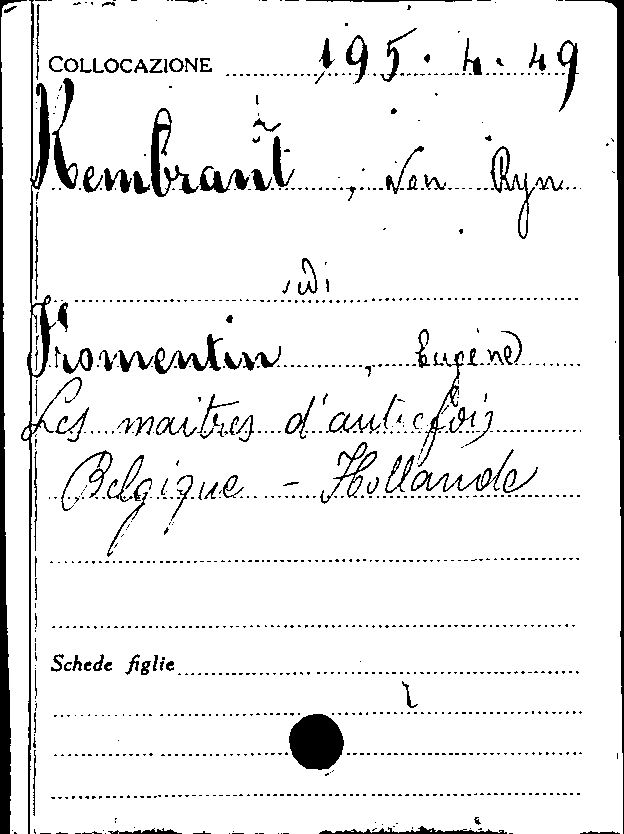 COLLOCAZIONE 195.4.49
Rembrant, Van Ryn
vedi
Fromentin, Eugène
Les maitres d'autrefois
Belgique - Hollande
Schede figlie